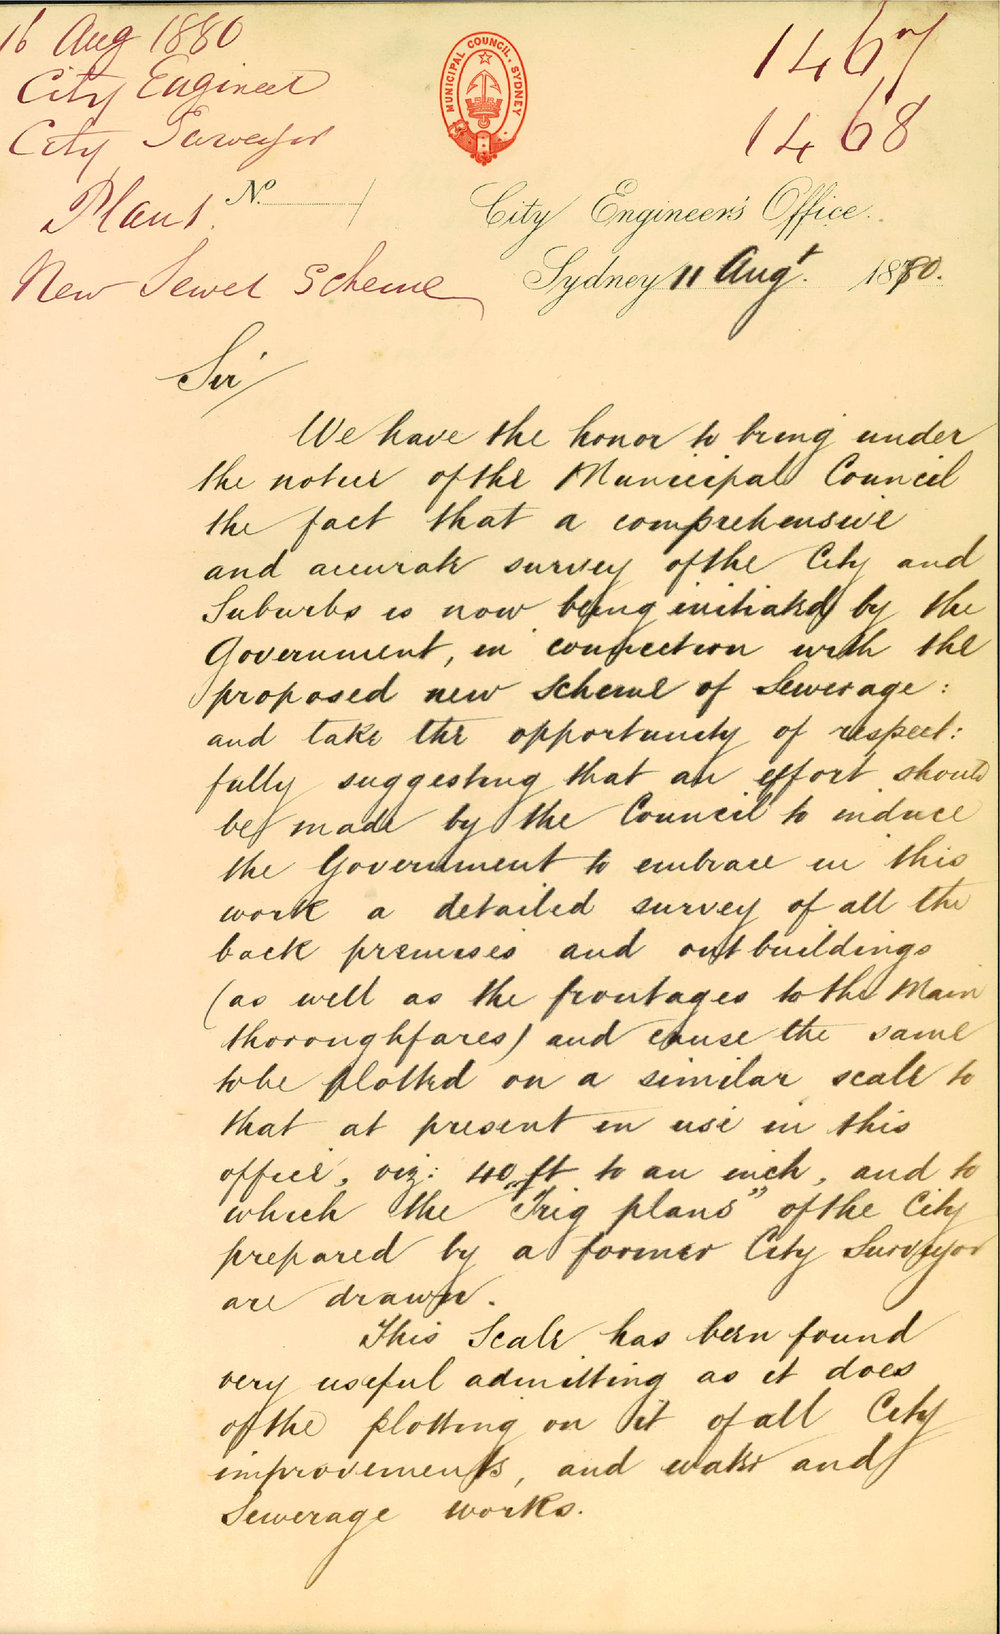 16 Aug 1880
City Engineer
City Surveyor
Plans.
New Sewer Scheme
MUNICIPAL COUNCIL, SYDNEY
1467
1468
No.
City Engineer's Office.
Sydney 11 Augt. 1880.
Sir
We have the honor to bring under
the notice of the Municipal Council
the fact that a comprehensive
and accurate survey of the City and
Suburbs is now being initiated by the
Government, in connection with the
proposed new scheme of Sewerage:
and take the opportunity of respect:
fully suggesting that an effort should
be made by the Council to induce
the Government to embrace in this
work a detailed survey of all the
back premises and outbuildings
(as well as the frontages to the Main
thoroughfares) and cause the same
to be plotted on a similar scale to
that at present in use in this
office, viz: 40 ft to an inch, and to
which the "Trig plans" of the City
prepared by a former City Surveyor
are drawn.
This Scale has been found
very useful admitting as it does
of the plotting on it of all City
improvements, and water and
Sewerage works.